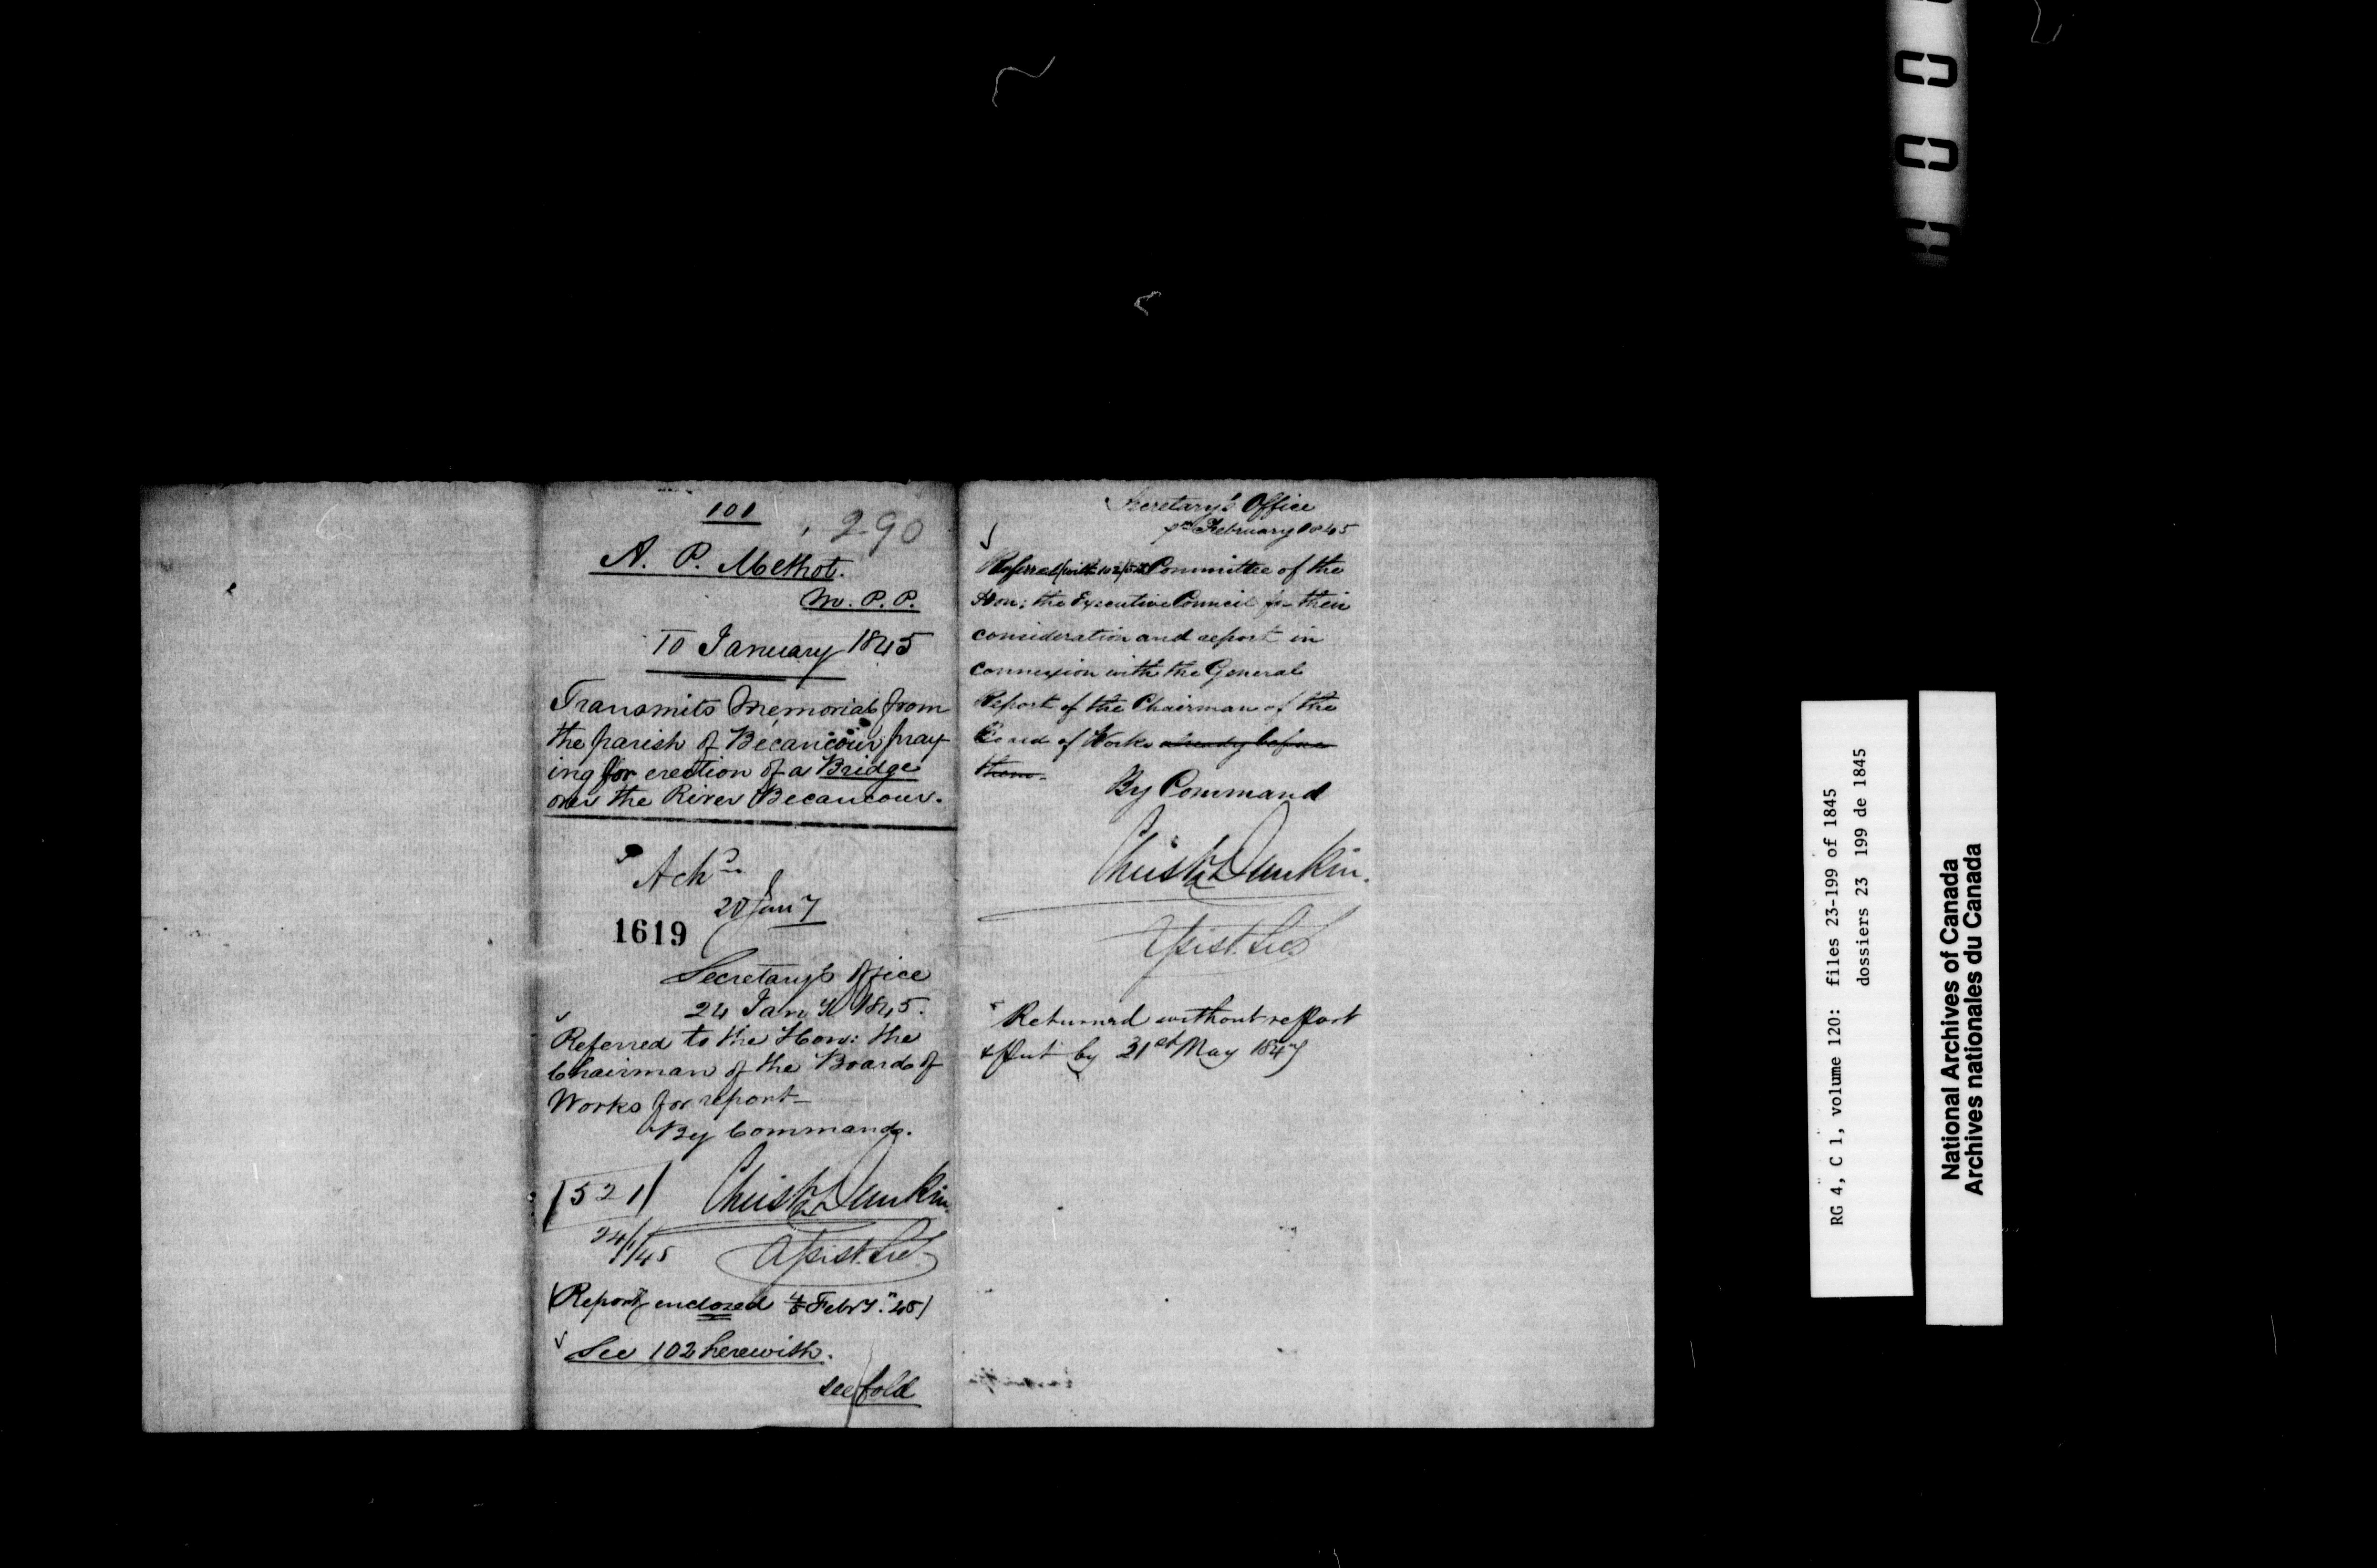 101
290
A. P. Methot.
M. P. P.
10 January 1845
Transmits Memorial from
the parish of Becancour pray
ing for erection of a Bridge
over the River Becancour.
Ackd
20 Jany
1619
Secretary's Office
24 Jany 1845.
Referred to the Hon: the
Chairman of the Board of
Works for report—
By Command.
[521]
Christr Dunkin
24/1/45
Assist. Sec.
(Report enclosed Febry. "45)
See 102 herewith.
see fold
Secretary's Office
February 1845
Referred (with 102) to Committee of the
Hon: the Executive Council for their
consideration and report in
connexion with the General
Report of the Chairman of the
Board of Works already before
them.
By Command
Christr Dunkin.
Assist. Sec.
Returned without report
& put by 31st May 1847
RG 4, C 1, volume 120: files 23-199 of 1845
dossiers 23 199 de 1845
National Archives of Canada
Archives nationales du Canada